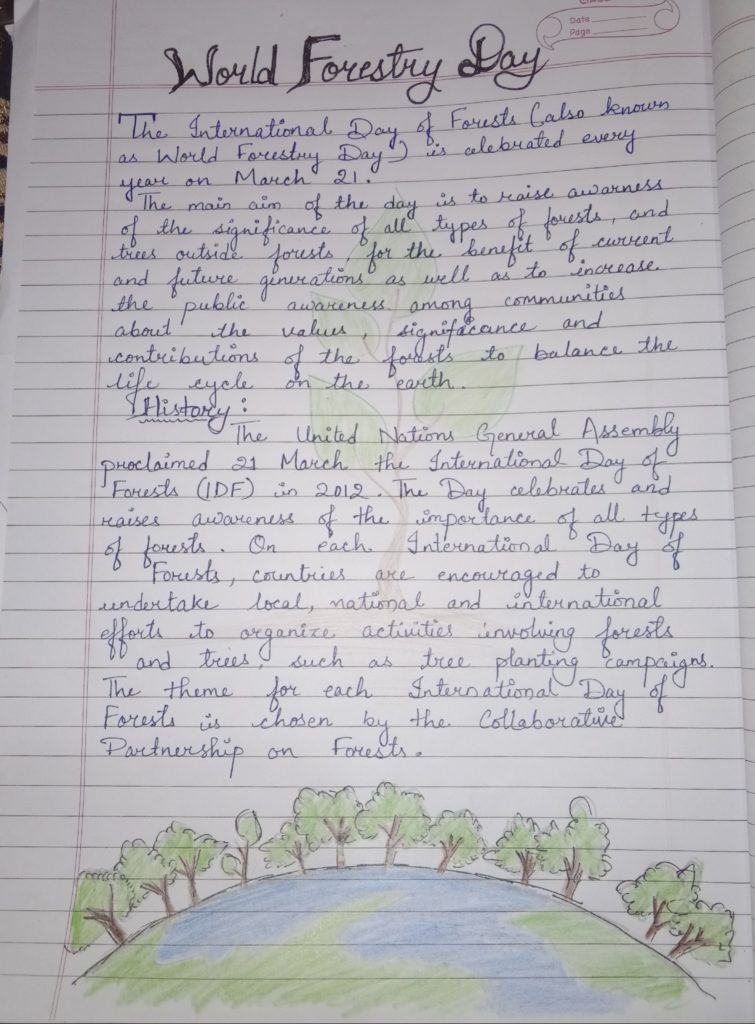 Date
Page
World Forestry Day
The International Day of Forests (also known
as World Forestry Day) is celebrated every
year on March 21.
The main aim of the day is to raise awarness
of the significance of all types of forests, and
trees outside forests, for the benefit of current
and future generations as well as to increase
the public awareness among communities
about the values, significance and
contributions of the forests to balance the
life cycle on the earth.
History:
The United Nations General Assembly
proclaimed 21 March the International Day of
Forests (IDF) in 2012. The Day celebrates and
raises awareness of the importance of all types
of forests. On each International Day of
Forests, countries are encouraged to
undertake local, national and international
efforts to organize activities involving forests
and trees, such as tree planting campaigns.
The theme for each International Day of
Forests is chosen by the Collaborative
Partnership on Forests.